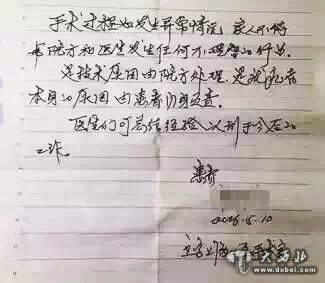 手术过程如发生异常情况，家人不得
与院方和医生发生任何不理智的行为。
是技术原因由院方处理，是我患者
本身的原因由患者自身负责。
医生们可总结经验以利于今后的
工作。
患者
2016.5.10
大西北
www.dxbei.com